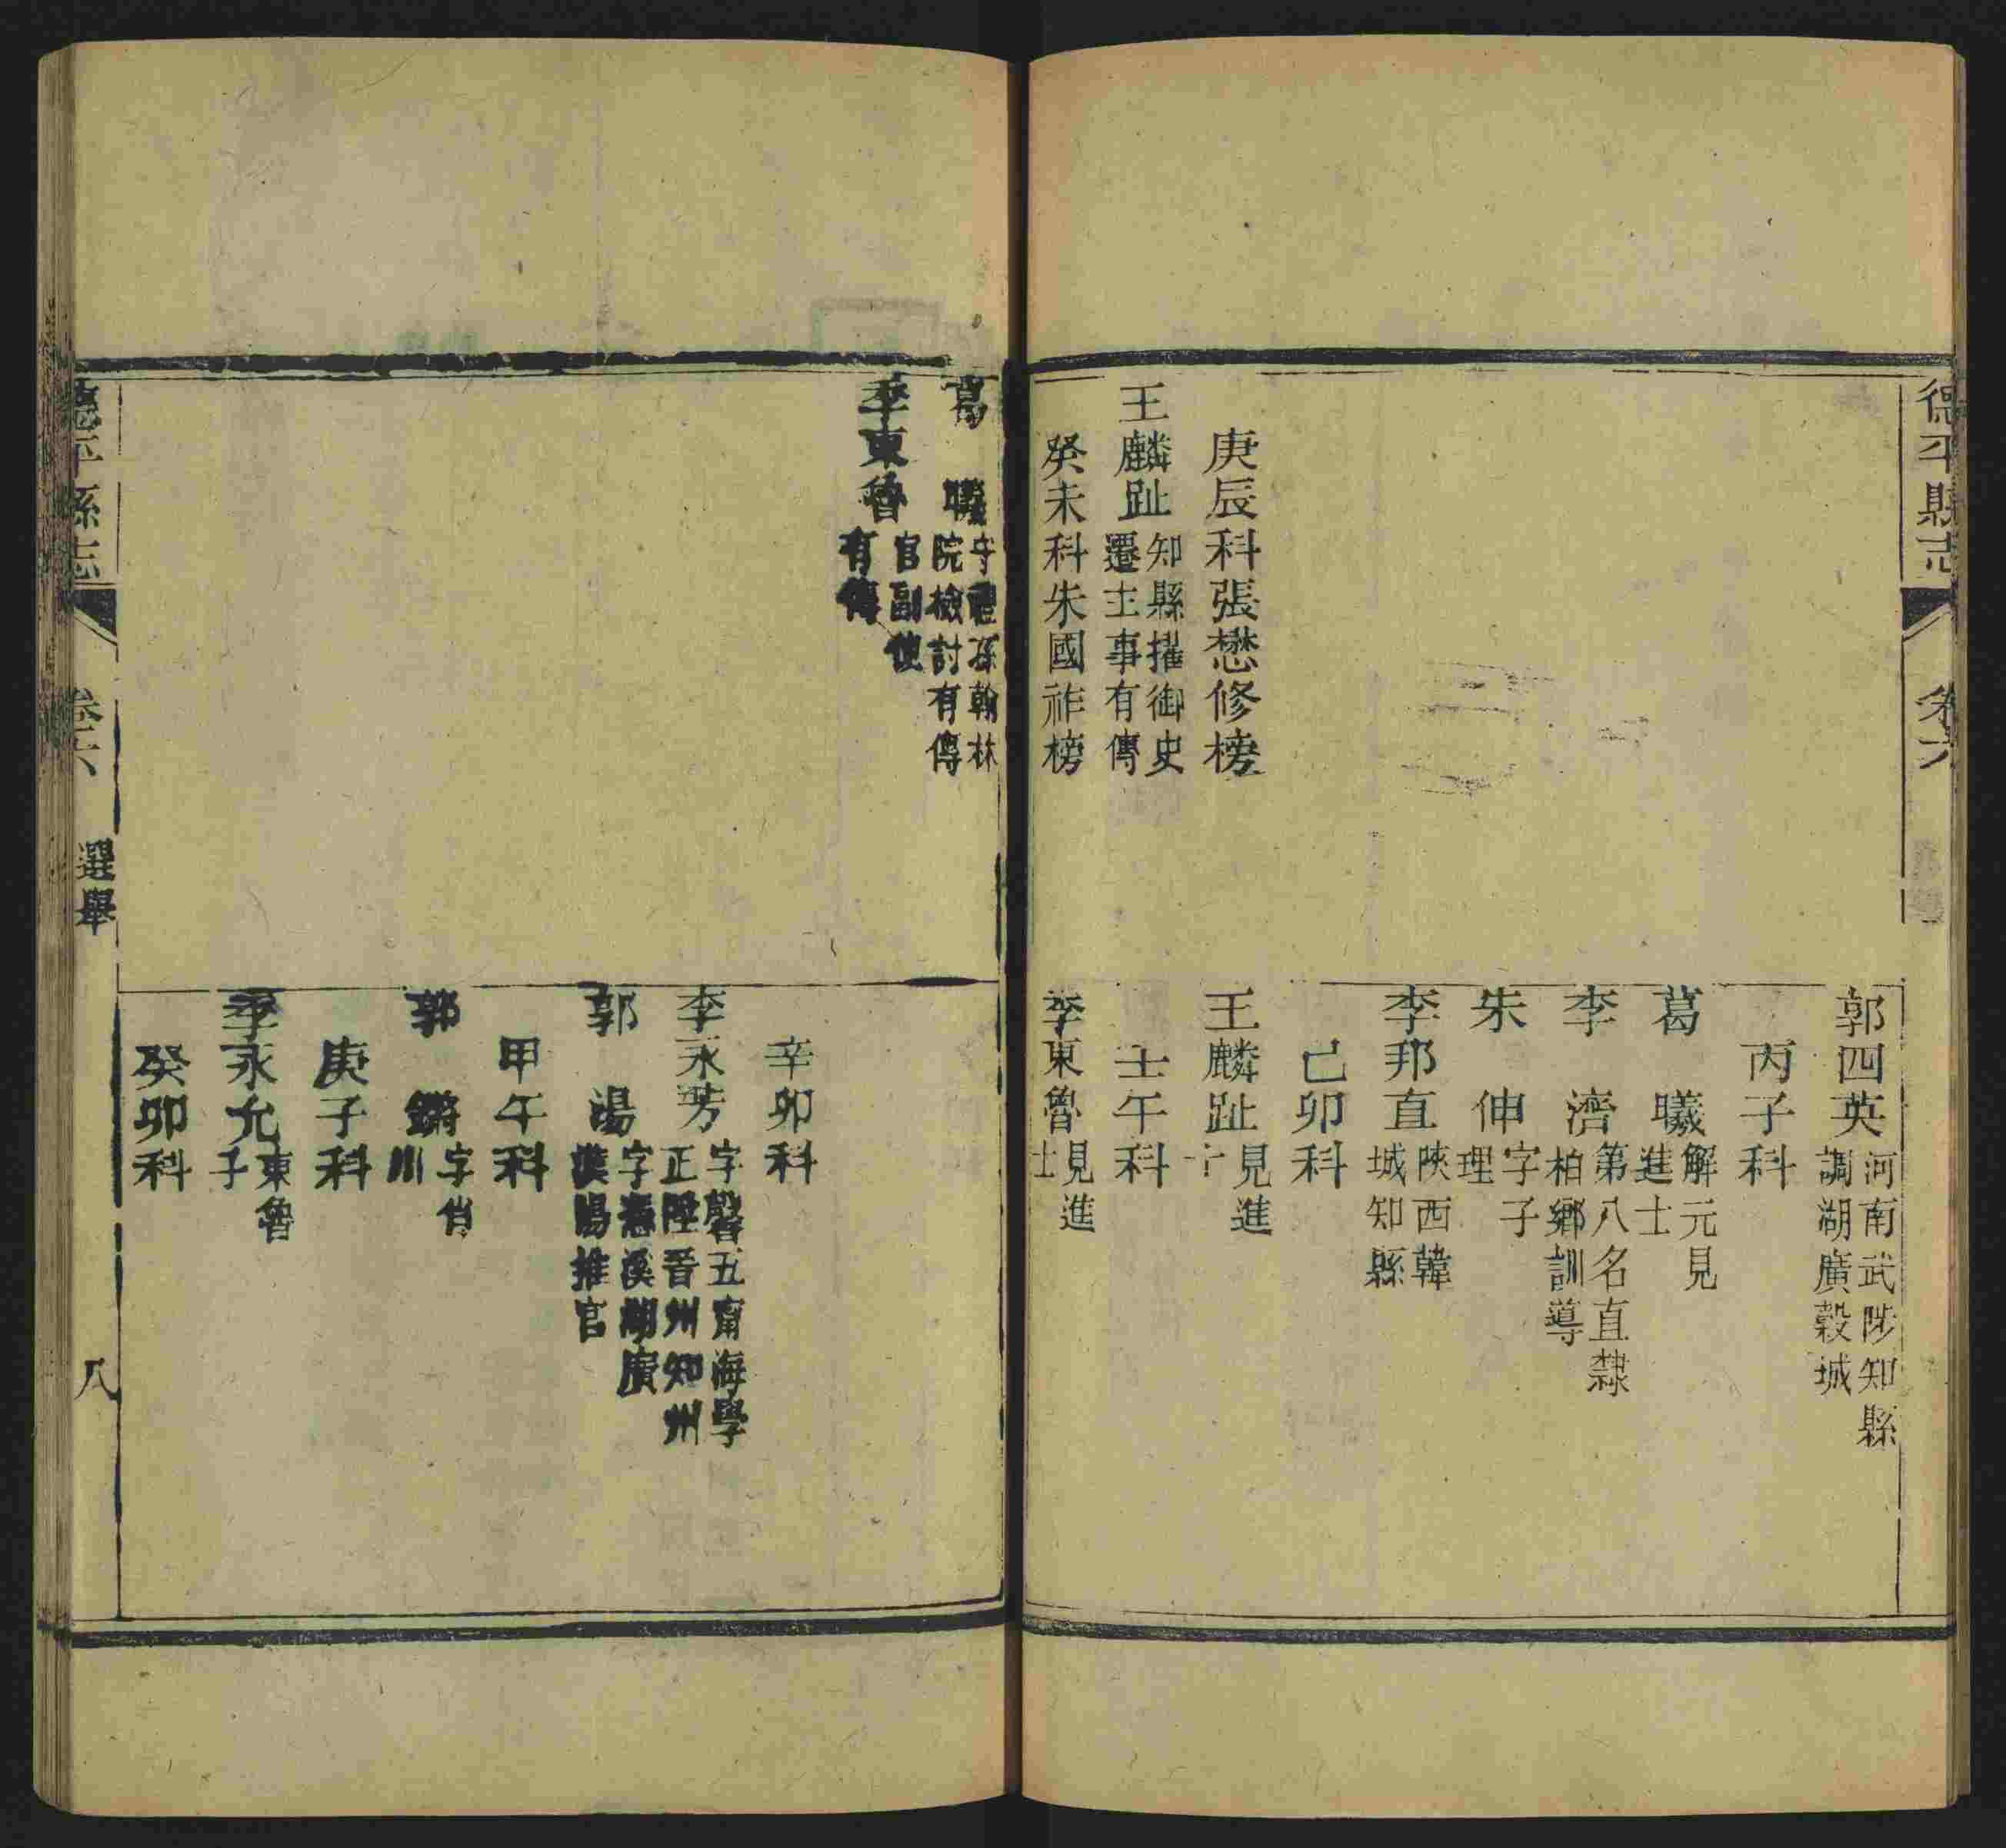 德平縣志
卷六
庚辰科張懋修榜
王麟趾知縣擢御史
遷主事有傳
癸未科朱國祚榜
郭四英河南武陟知縣
調湖廣穀城
丙子科
葛 曦解元見
進士
李 濟第八名直隸
柏鄉訓導
朱 伸字子
理
李邦直陝西韓
城知縣
己卯科
王麟趾見進
壬午科
李東魯見進
士
葛 曦守禮孫翰林
院檢討有傳
李東魯官副使
有傳
辛卯科
李永芳字馨五甯海學
正陞晉州知州
郭 湯
漢陽推官
甲午科
郭 鏘字肖
川
庚子科
李永允東魯
子
癸卯科
德平縣志
卷六
選舉
八